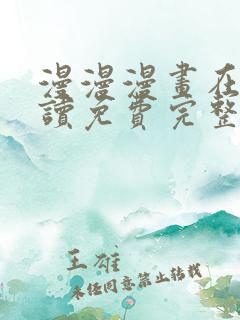 漫漫漫畫在
讀免費完整
王雄
未经同意禁止转载